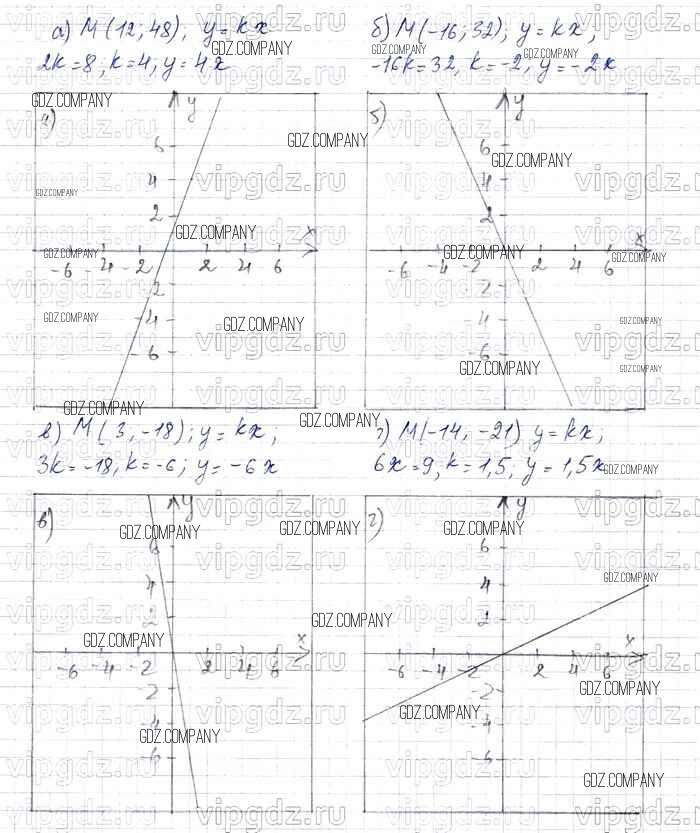 а) M(12; 48), y = kx
2k=8; k=4, y=4x
б) M(-16; 32); y = kx;
-16k=32, k=-2, y=-2x
а)
y
6
4
2
x
-6 -4 -2 2 4 6
-2
-4
-6
б)
6
4
2
x
-6 -4 -2 2 4 6
-2
-4
-6
в) M(3, -18); y = kx;
3k=-18, k=-6; y=-6x
г) M(-14, -21) y = kx,
6x=9, k=1,5; y=1,5x
в)
y
6
4
2
x
-6 -4 -2 2 4 6
-2
-4
-6
г)
y
6
4
2
x
-6 -4 -2 2 4 6
-2
-4
-6
GDZ.COMPANY
vipgdz.ru